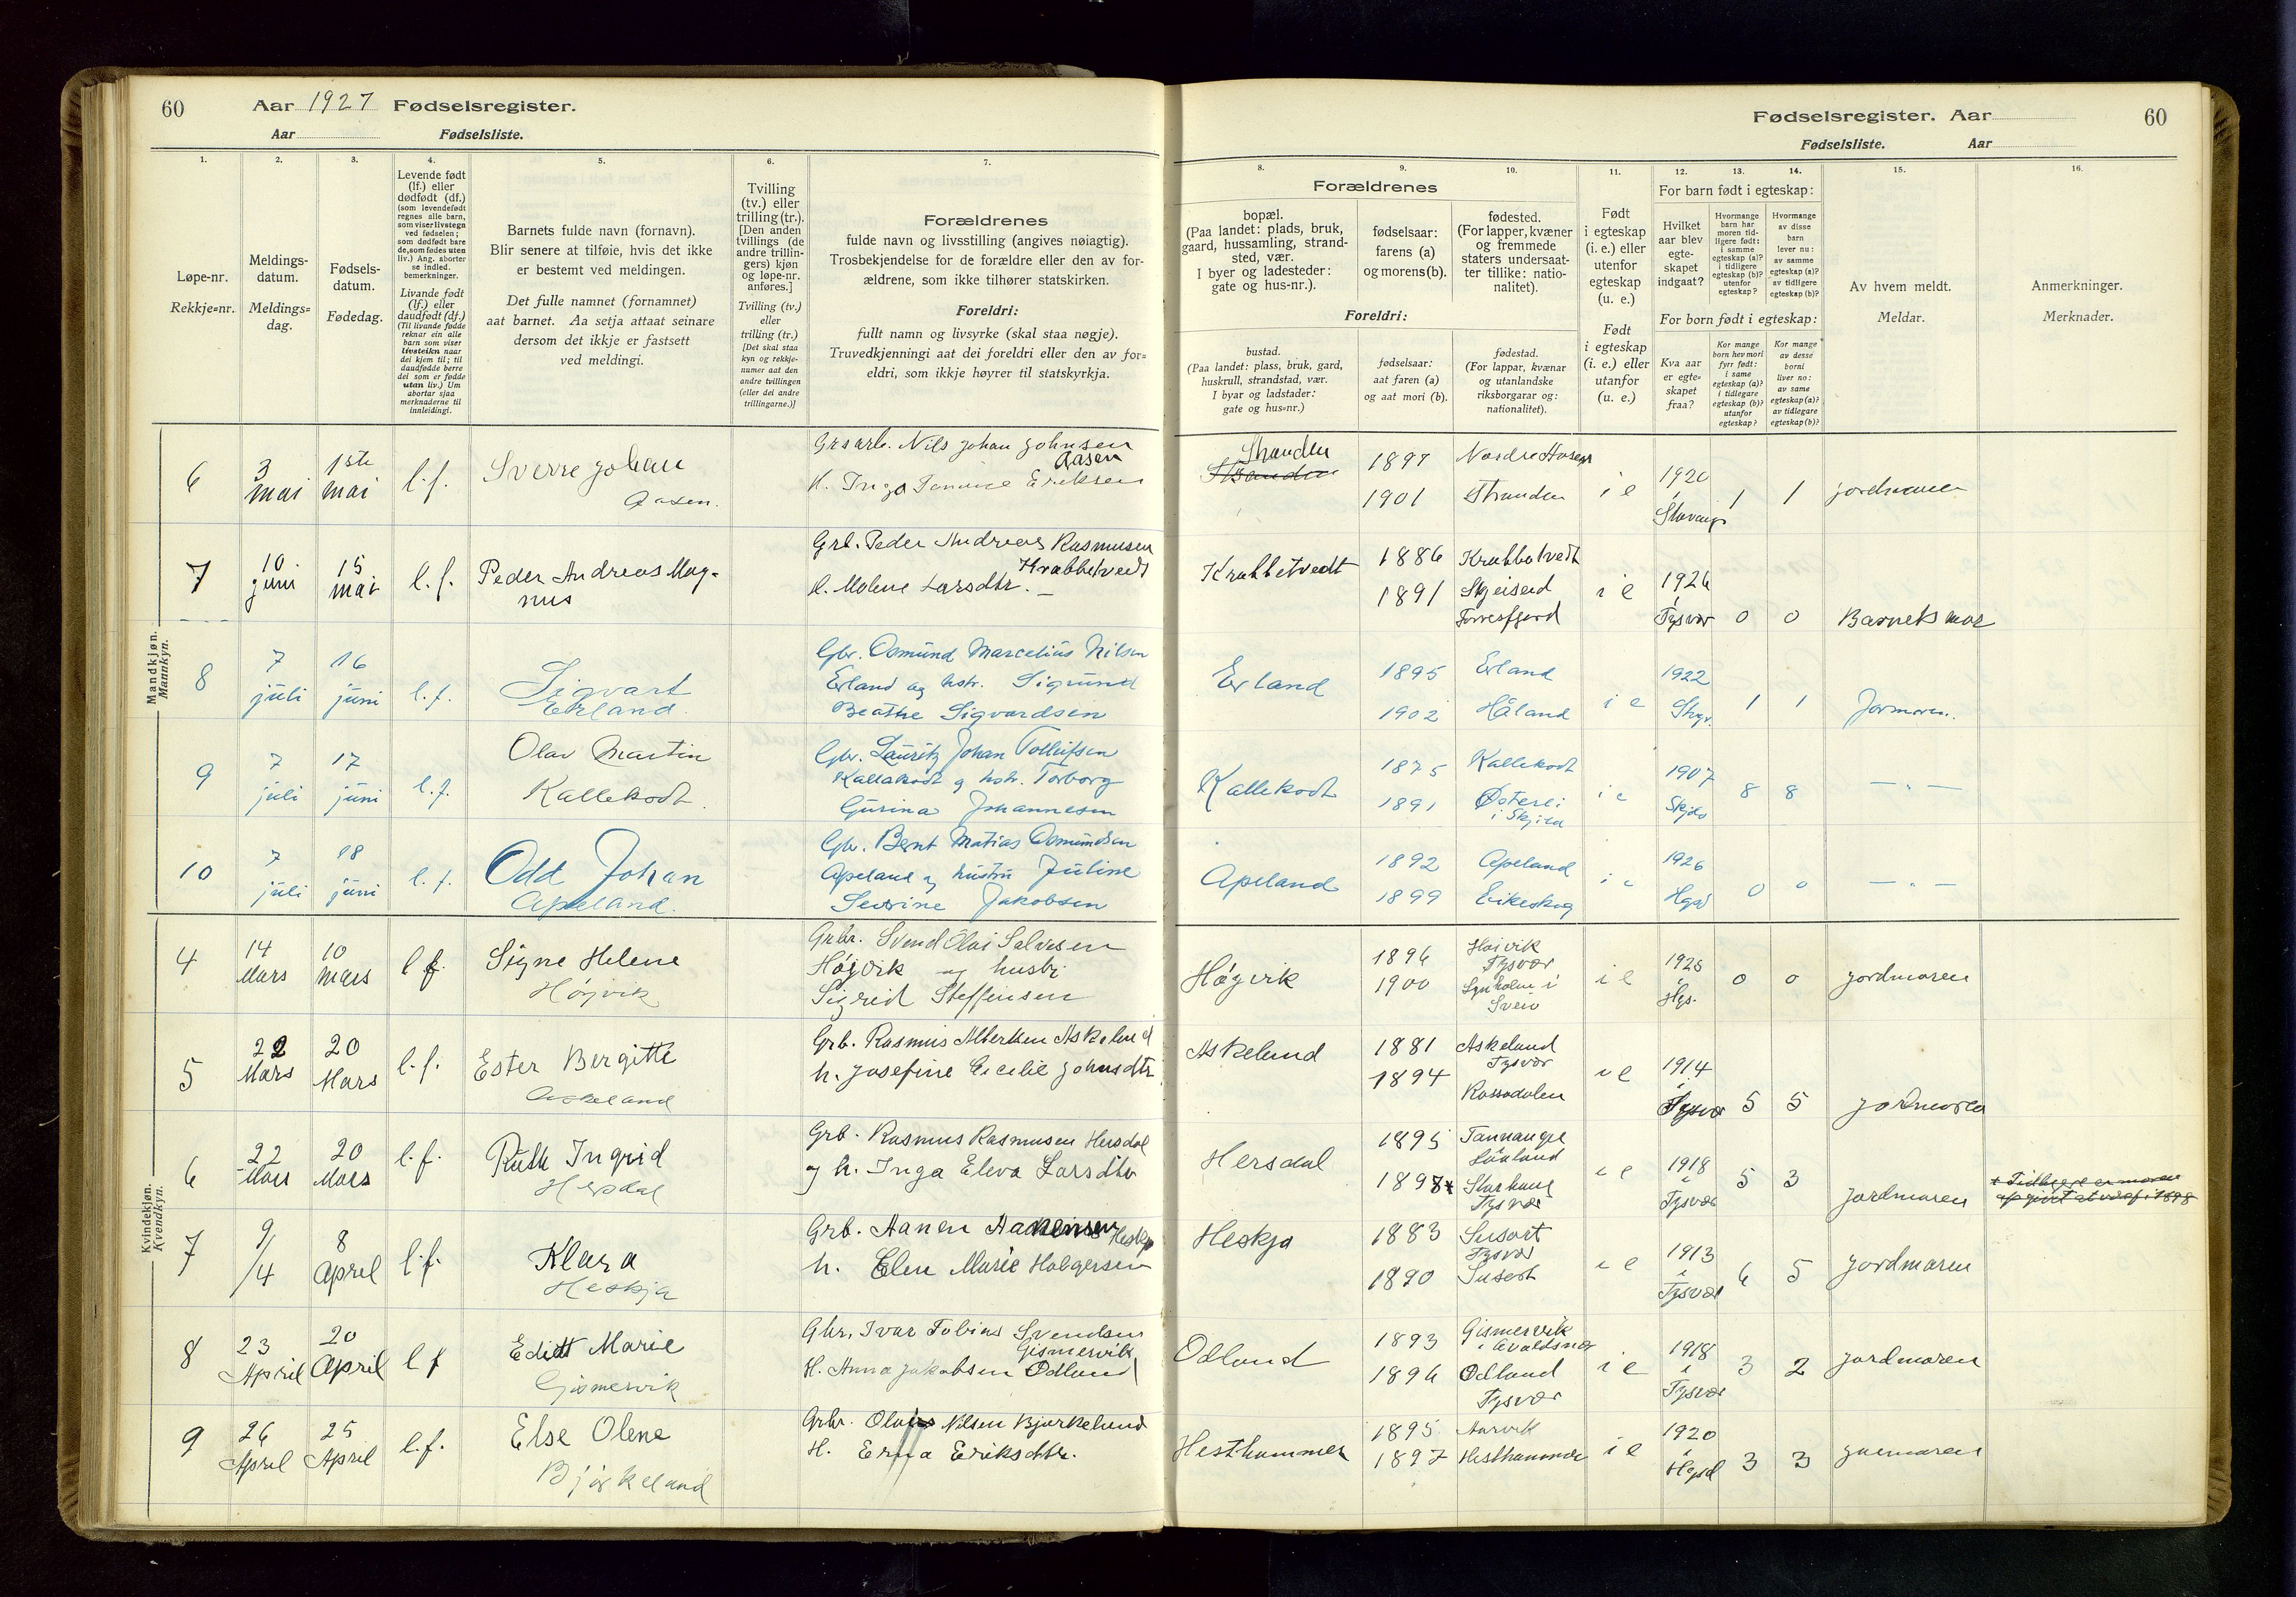 60 Aar 1927 Fødselsregister.
Aar Fødselsliste.
Fødselsregister. Aar 60
Fødselsliste. Aar
1. 2. 3. 4. 5. 6. 7.
8. 9. 10. 11. 12. 13. 14. 15. 16.
Løpe-nr.
Rekkje-nr.
Meldings-
datum.
Meldings-
dag.
Fødsels-
datum.
Fødedag.
Levende født
(lf.) eller
dødfødt (df.)
(som levendefødt
regnes alle barn,
som viser livstegn
ved fødselen;
som dødfødt bare
de, som fødes uten
liv.) Ang. aborter
se indled.
bemerkninger.
Livande født
(lf.) eller
daudfødt (df.)
(Til livande fødde
reknar ein alle
barn som viser
livsteikn naar
dei kjem til; til
daudfødde berre
dei som er fødde
utan liv.) Um
abortar sjaa
merknaderne til
innleidingi.
Barnets fulde navn (fornavn).
Blir senere at tilføie, hvis det ikke
er bestemt ved meldingen.
Det fulle namnet (fornamnet)
aat barnet. Aa setja attaat seinare
dersom det ikkje er fastsett
ved meldingi.
Tvilling
(tv.) eller
trilling (tr.).
[Den anden
tvillings (de
andre trillin-
gers) kjøn
og løpe-nr.
anføres.]
Tvilling (tv.)
eller
trilling (tr.)
[Det skal staa
kyn og rekkje-
numer aat den
andre tvillingen
(eller dei andre
trillingarne.)]
Forældrenes
fulde navn og livsstilling (angives nøiagtig).
Trosbekjendelse for de forældre eller den av for-
ældrene, som ikke tilhører statskirken.
Foreldri:
fullt namn og livsyrke (skal staa nøgje).
Truvedkjenningi aat dei foreldri eller den av for-
eldri, som ikkje høyrer til statskyrkja.
Forældrenes
bopæl.
(Paa landet: plads, bruk,
gaard, hussamling, strand-
sted, vær.
I byer og ladesteder:
gate og hus-nr.).
fødselsaar:
farens (a)
og morens (b).
fødested.
(For lapper, kvæner
og fremmede
staters undersaat-
ter tillike: natio-
nalitet).
Foreldri:
bustad.
(Paa landet: plass, bruk, gard,
huskrull, strandstad, vær.
I byar og ladstader:
gate og hus-nr.)
fødselsaar:
aat faren (a)
og aat mori (b).
fødestad.
(For lappar, kvænar
og utanlandske
riksborgarar og:
nationalitet).
Født
i egteskap
(i. e.) eller
utenfor
egteskap
(u. e.)
Født
i egteskap
(i. e.) eller
utanfor
(u. e.)
For barn født i egteskap:
Hvilket
aar blev
egte-
skapet
indgaat?
Hvormange
barn har
moren tid-
ligere født:
i samme
egteskap (a)?
i tidligere
egteskap (b)?
utenfor
egteskap?
Hvormange
av disse
barn
lever nu:
av samme
egteskap (a)?
av tidligere
egteskap (b)?
For born født i egteskap:
Kva aar
er egte-
skapet
fraa?
Kor mange
born hev mori
fyrr født:
i same
egteskap (a)?
i tidlegare
egteskap (b)?
utanfor
egteskap?
Kor mange
av desse
borni
liver no:
av same
egteskap (a)?
av tidlegare
egteskap (b)?
Av hvem meldt.
Meldar.
Anmerkninger.
Merknader.
Mandkjøn.
Mannkyn.
6 3 mai 1ste mai l.f. Sverre Johan Aasen.
Nils Johan Johnsen Aasen
Eriksen
Stranden 1897 1901 Stranden i e 1920 1 1 jordmoren
7 10 juni 15 mai l.f. Peder Andreas Mag-
nus
Grb. Peder Andreas Rasmusen
Krabbetvedt
H. Malene Larsdtr.
Krabbetvedt 1886 Krabbatvedt
1891 i e 1926 Tysvær 0 0 Barnets mor
8 7 juli 16 juni l.f. Sigvart
Erland.
Gbr. Osmund Marcelius Nilsen
Erland og hstr. Sigrund
Beathe Sigvardsen
Erland 1895 Erland
1902 Håland i e 1922 1 1 Jormoren.
9 7 juli 17 juni l.f. Olav Martin
Kallekodt.
Gbr. Lauritz Johan Tollefsen
Kallekodt og hstr. Torborg
Gurina Johannesen
Kallekodt 1875 Kallekodt
1891 i e 1907 8 8 — " —
10 7 juli 18 juni l.f. Odd Johan
Apeland.
Gbr. Bernt Matias Osmundsen
Apeland og hustru Juline
Severine Jakobsen
Apeland 1892 Apeland
1899 Eikeskog i e 1926 0 0 — " —
Kvindekjøn.
Kvendkyn.
4 14 Mars 10 Mars l f. Signe Helene
Høgvik
Grbr. Svend Olai Salvesen
Høgvik og hustr
Sigrid Steffensen
Høgvik 1896 Høivik Tysvær
1900 i Sveio i e 1925 Hgs. 0 0 jordmoren
5 22 Mars 20 Mars l.f. Ester Bergitte
Askeland
Grb. Rasmus Albertsen Askeland
h. Josefine Cecilie Johnsdtr
Askeland 1881 Askeland Tysvær
1894 i e 1914 i Tysvær 5 5 jordmoren
6 22 Mars 20 Mars l.f. Ruth Ingrid
Hersdal
Grb. Rasmus Rasmusen Hersdal
og h. Inga Eleva Larsdtr
Hersdal 1895
1897 Tysvær i e 1918 i Tysvær 5 3 jordmoren
7 9/4 8 April l.f. Klara
Heskja
Grb. Hanen Hanensen Heskja
h. Elen Marie Holgersen
Heskja 1883 Susort Tysvær
1890 Susort i e 1913 i Tysvær 6 5 jordmoren
8 23 April 20 April l f Edidt Marie
Gismervik
Gbr. Ivar Tobias Svendsen
Gismervik
H. Anna Jakobsen Odland
Odland 1893 Gismervik i Avaldsnes
1896 Odland Tysvær i e 1918 i Tysvær 3 2 jordmoren
9 26 April 25 April l.f. Else Olene
Bjørkeland
Grbr. Nilsen Bjørkelund
H. Erna Eriksdtr.
Hesthammer 1895 Aarvik
1897 Hesthammer i e 1920 i Hgsd 3 3 jormoren